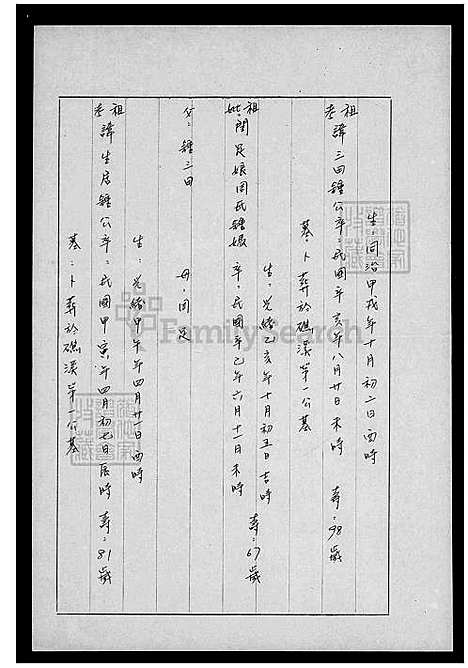 生：同治甲戌年十月初二日酉時
祖考 諱三田鍾公 卒：民國辛亥年八月廿日未時 壽：98歲
墓：卜葬於礁溪第一公墓
生：光緒乙亥年十月初五日吉時
祖妣 閨足娘周氏鍾媽 卒：民國辛巳年六月十一日未時 壽：67歲
父：鍾三田 母：周足
生：光緒甲午年四月廿一日酉時
祖考 諱生居鍾公 卒：民國甲寅年四月初七日辰時 壽：81歲
墓：卜葬於礁溪第一公墓
FamilySearch